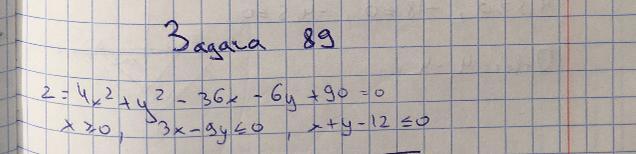 Задача 89
z = 4x² + y² - 36x - 6y + 90 = 0
x ≥ 0, 3x - 9y ≤ 0, x + y - 12 ≤ 0